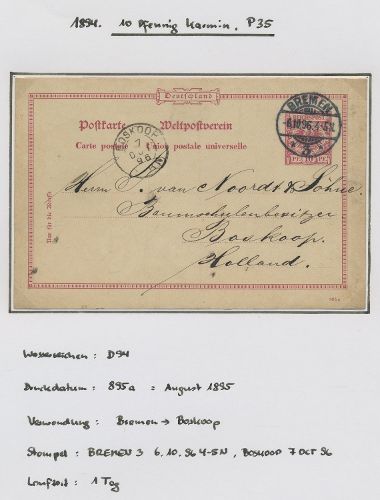 1894. 10 Pfennig Karmin. P35
Deutschland
Postkarte Weltpostverein
Carte postale Union postale universelle
BREMEN
6.10.96.4-5N.
BOSKOOP
7
96
PFENNIG
Herrn P. van Noordt & Söhne
Baumschulenbesitzer
Boskoop.
Holland.
Nur für die Adresse
895a
Wasserzeichen : D94
Druckdatum : 895a = August 1895
Verwendung : Bremen → Boskoop
Stempel : BREMEN 3 6.10.96 4-5N, BOSKOOP 7 OCT 96
Laufzeit : 1 Tag